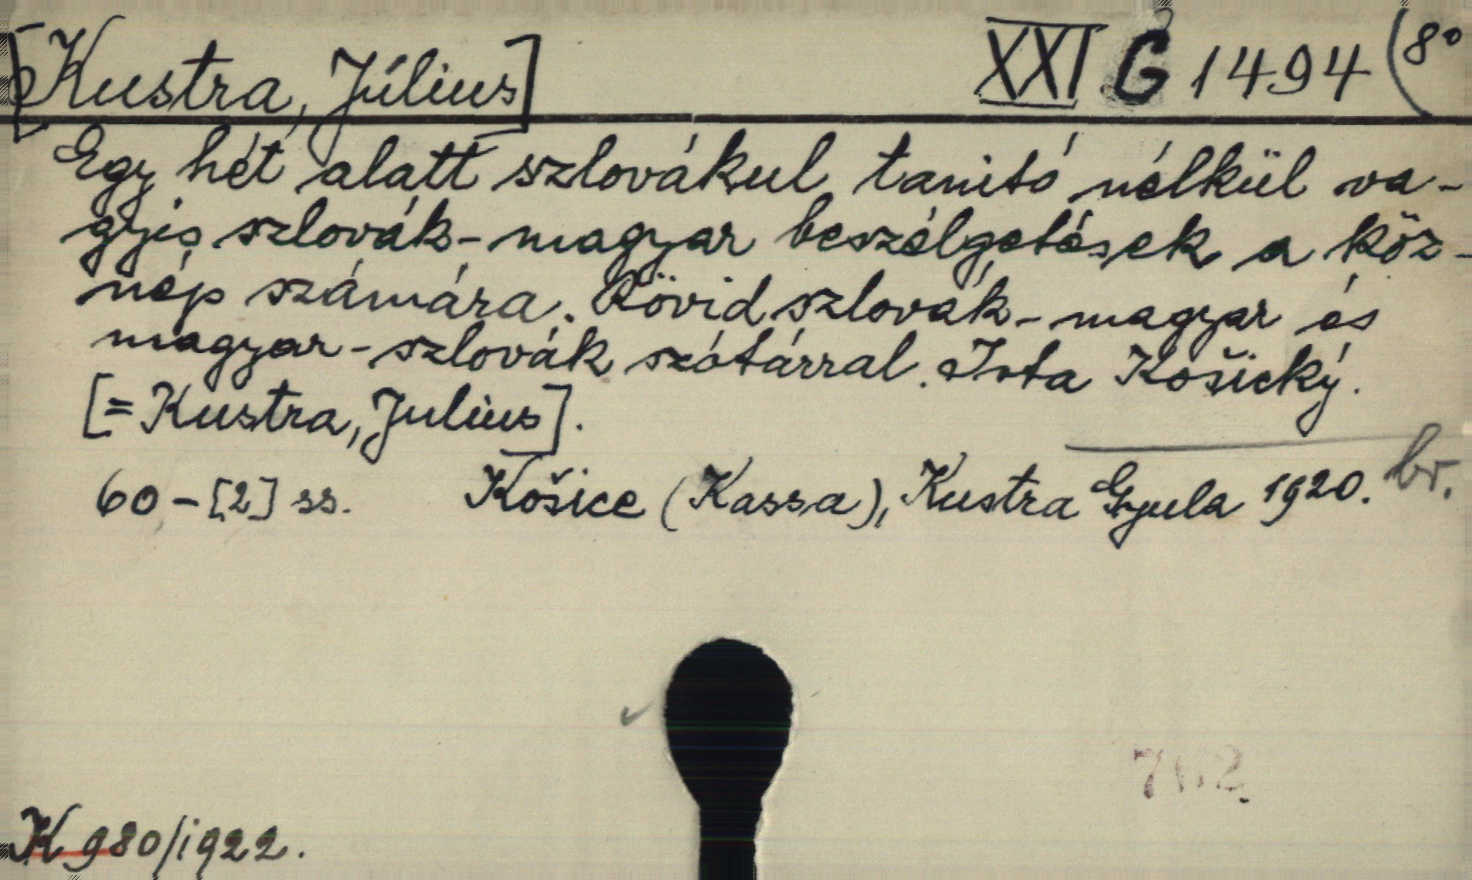 [Kustra, Július] XXI G 1494 (8°
Egy hét alatt szlovákul tanitó nélkül va-
gyis szlovák-magyar beszélgetések a köz-
nép számára. Rövid szlovák-magyar és
magyar-szlovák szótárral. Irta Košický.
[=Kustra, Julius].
60-[2] ss. Košice (Kassa), Kustra Gyula 1920. br.
K 980/1922.